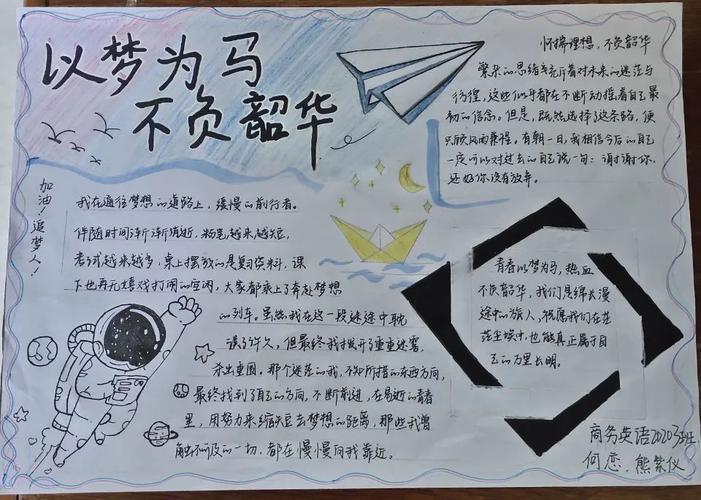 以梦为马
不负韶华
加油！追梦人！
我在通往梦想的道路上，缓慢的前行者。
伴随时间渐渐消逝，粉笔越来越短，
考试越来越多，桌上摆放的是复习资料，课
下也再无嬉戏打闹的空闲，大家都乘上了奔赴梦想
的列车。虽然我在这一段迷途中耽
误了许久，但最终我拨开了重重迷雾，
杀出重围。那个迷茫的我，不知所措的东西方向，
最终找到了自己的方向，不断前进，在易逝的青春
里，用努力来缩短去梦想的距离，那些我曾
触不可及的一切，都在慢慢向我靠近。
怀揣理想，不负韶华
繁杂的思绪充斥着对未来的迷茫与
彷徨，这些似乎都在不断动摇着自己最
初的信念。但是，既然选择了这条路，便
只顾风雨兼程。有朝一日，我相信今后的自己
一定可以对过去的自己说一句：谢谢你，
还好你没有放弃。
青春以梦为马，热血
不负韶华，我们是绵长漫
途中的旅人，祝愿我们在茫
茫尘埃中，也能真正属于自
己的万里长明。
商务英语20203班
何恋、熊紫仪